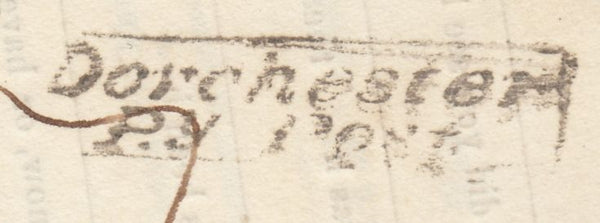 Dorchester
P.y Post